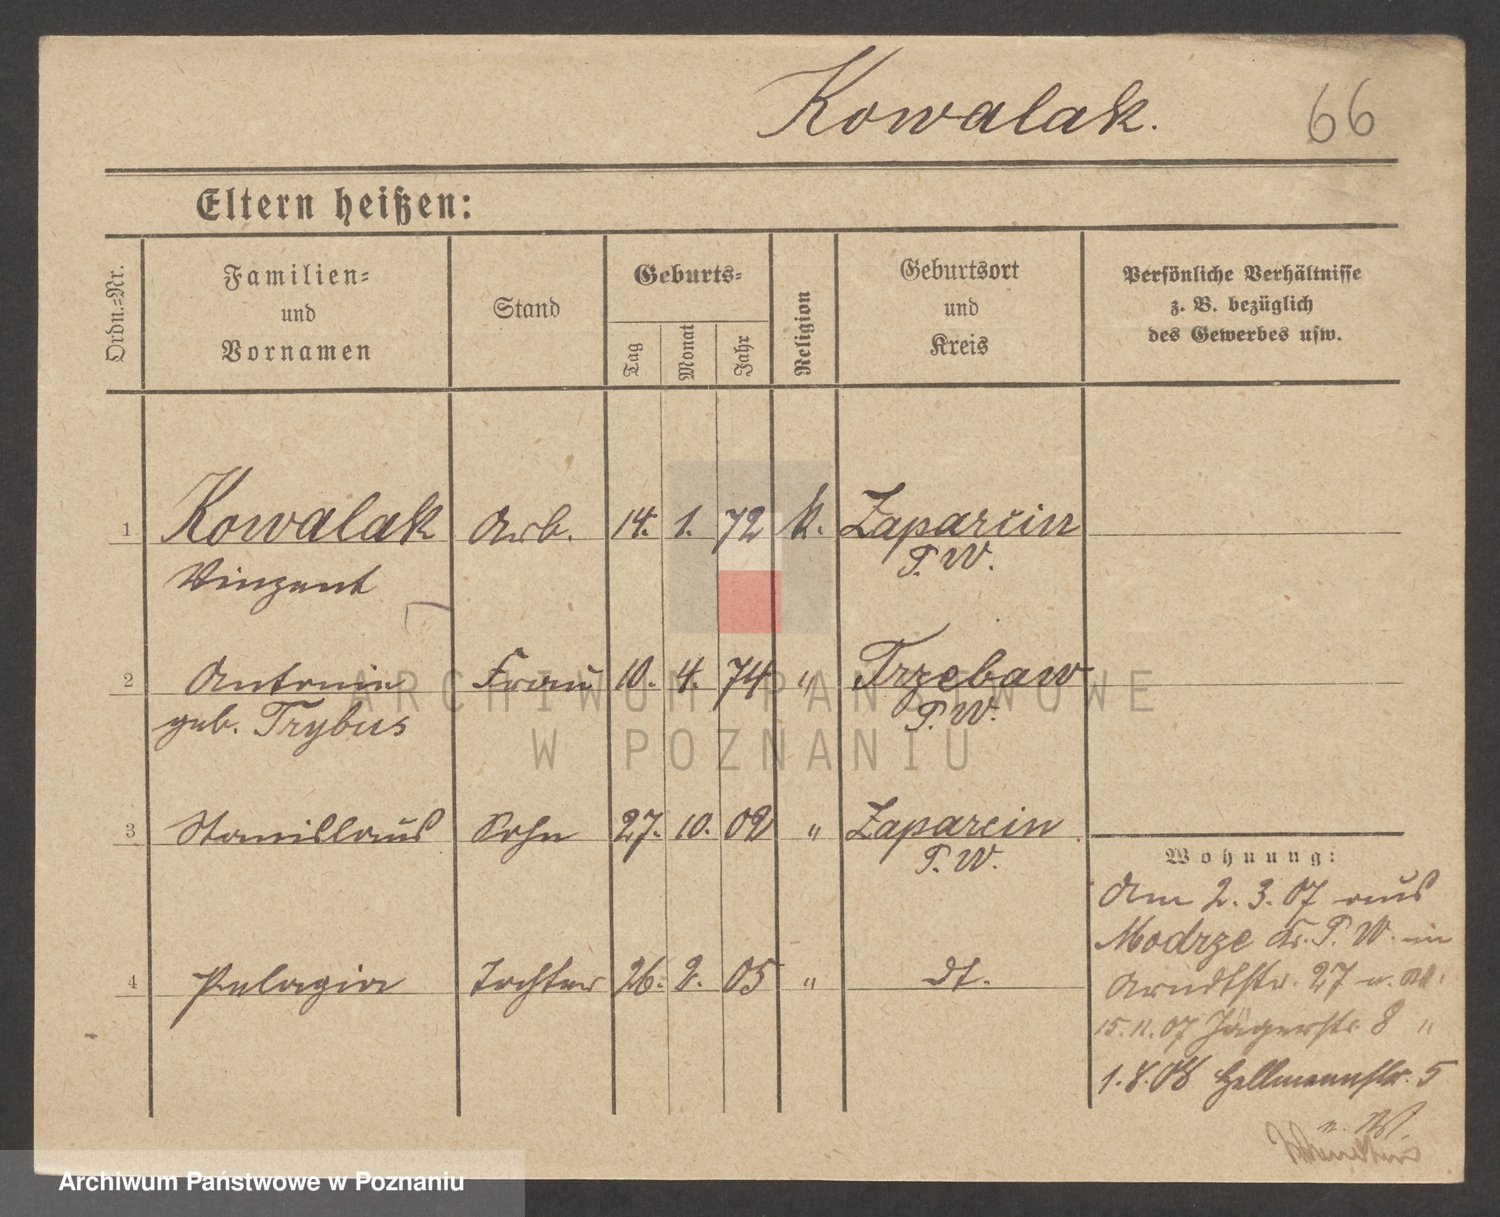 Kowalak.
66
Eltern heißen:
Ordn.-Nr.
Familien-
und
Vornamen
Stand
Geburts-
Tag
Monat
Jahr
Religion
Geburtsort
und
Kreis
Persönliche Verhältnisse
z. B. bezüglich
des Gewerbes usw.
1 Kowalak Arb. 14. 1. 72 k. Zaparcin
Vinzent P. W.
2 Antonie Frau 10. 4. 74 " Trzebaw
geb. Trybus P. W.
3 Stanislaus Sohn 27. 10. 02 " Zaparcin
P. W.
4 Pelagia Tochter 26. 2. 05 " dt.
Wohnung:
Am 2. 3. 07 aus
Modrze Kr. P. W. in
Arndtstr. 27 u. W.
15.11.07 Jägerstr. 8 "
1.8.08 Hellmannstr. 5
u. W.
ARCHIWUM PAŃSTWOWE
W POZNANIU
Archiwum Państwowe w Poznaniu